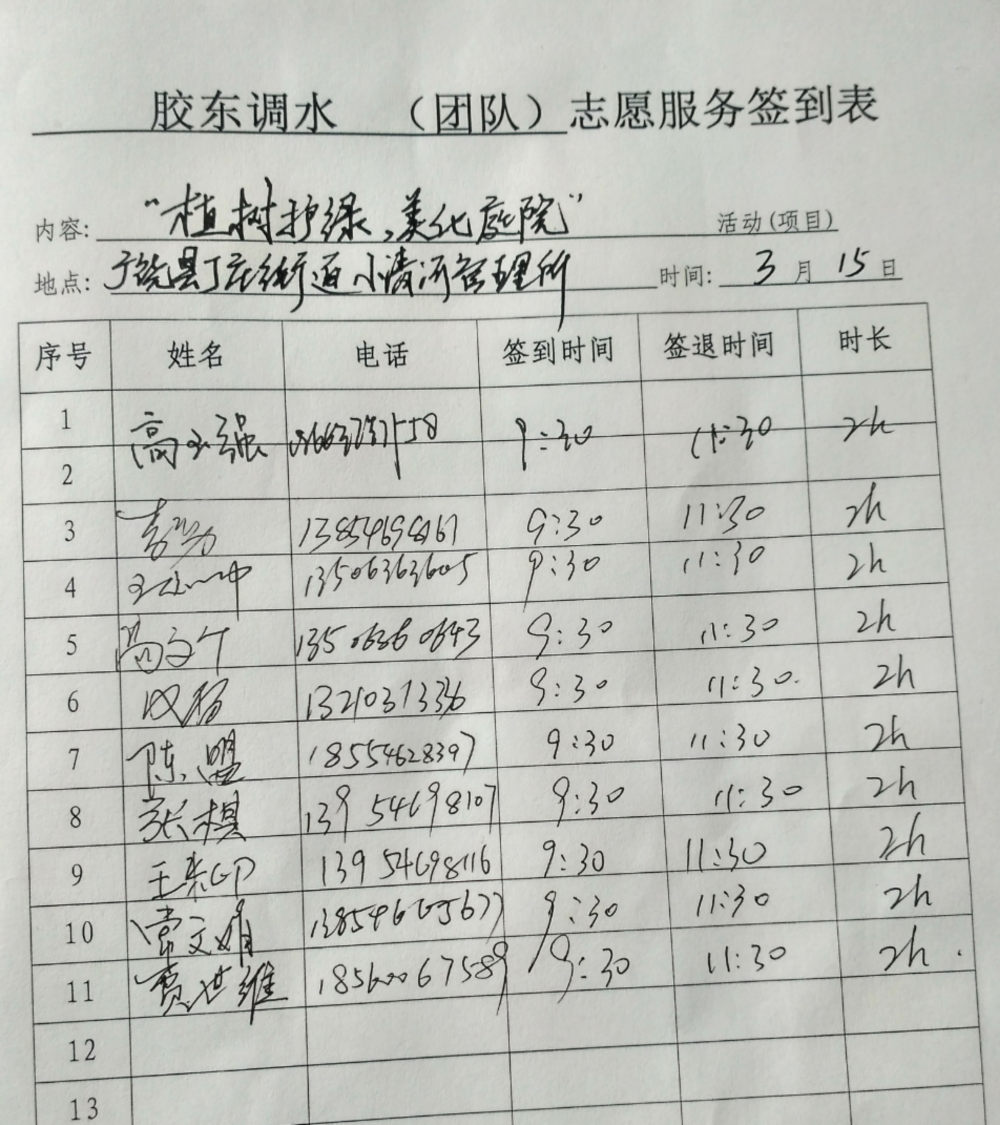 胶东调水 （团队）志愿服务签到表
内容: “植树护绿,美化庭院” 活动(项目)
地点: 广饶县丁庄街道小清河管理所 时间: 3 月 15 日
序号 姓名 电话 签到时间 签退时间 时长
1 高玉强 9:30 11:30 2h
2
3 13854698161 9:30 11:30 2h
4 13506363605 9:30 11:30 2h
5 高文个 13506360643 9:30 11:30 2h
6 13210371336 9:30 11:30. 2h
7 陈盟 18554628397 9:30 11:30 2h
8 张棋 13954698107 9:30 11:30 2h
9 王来印 13954698116 9:30 11:30 2h
10 常文娟 13854665677 9:30 11:30 2h
11 贾世维 18560067589 9:30 11:30 2h.
12
13